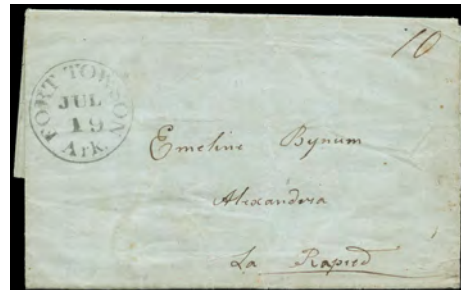 10
FORT TOWSON
JUL
19
Ark.
Emeline Bynum
Alexandria
La Rapid